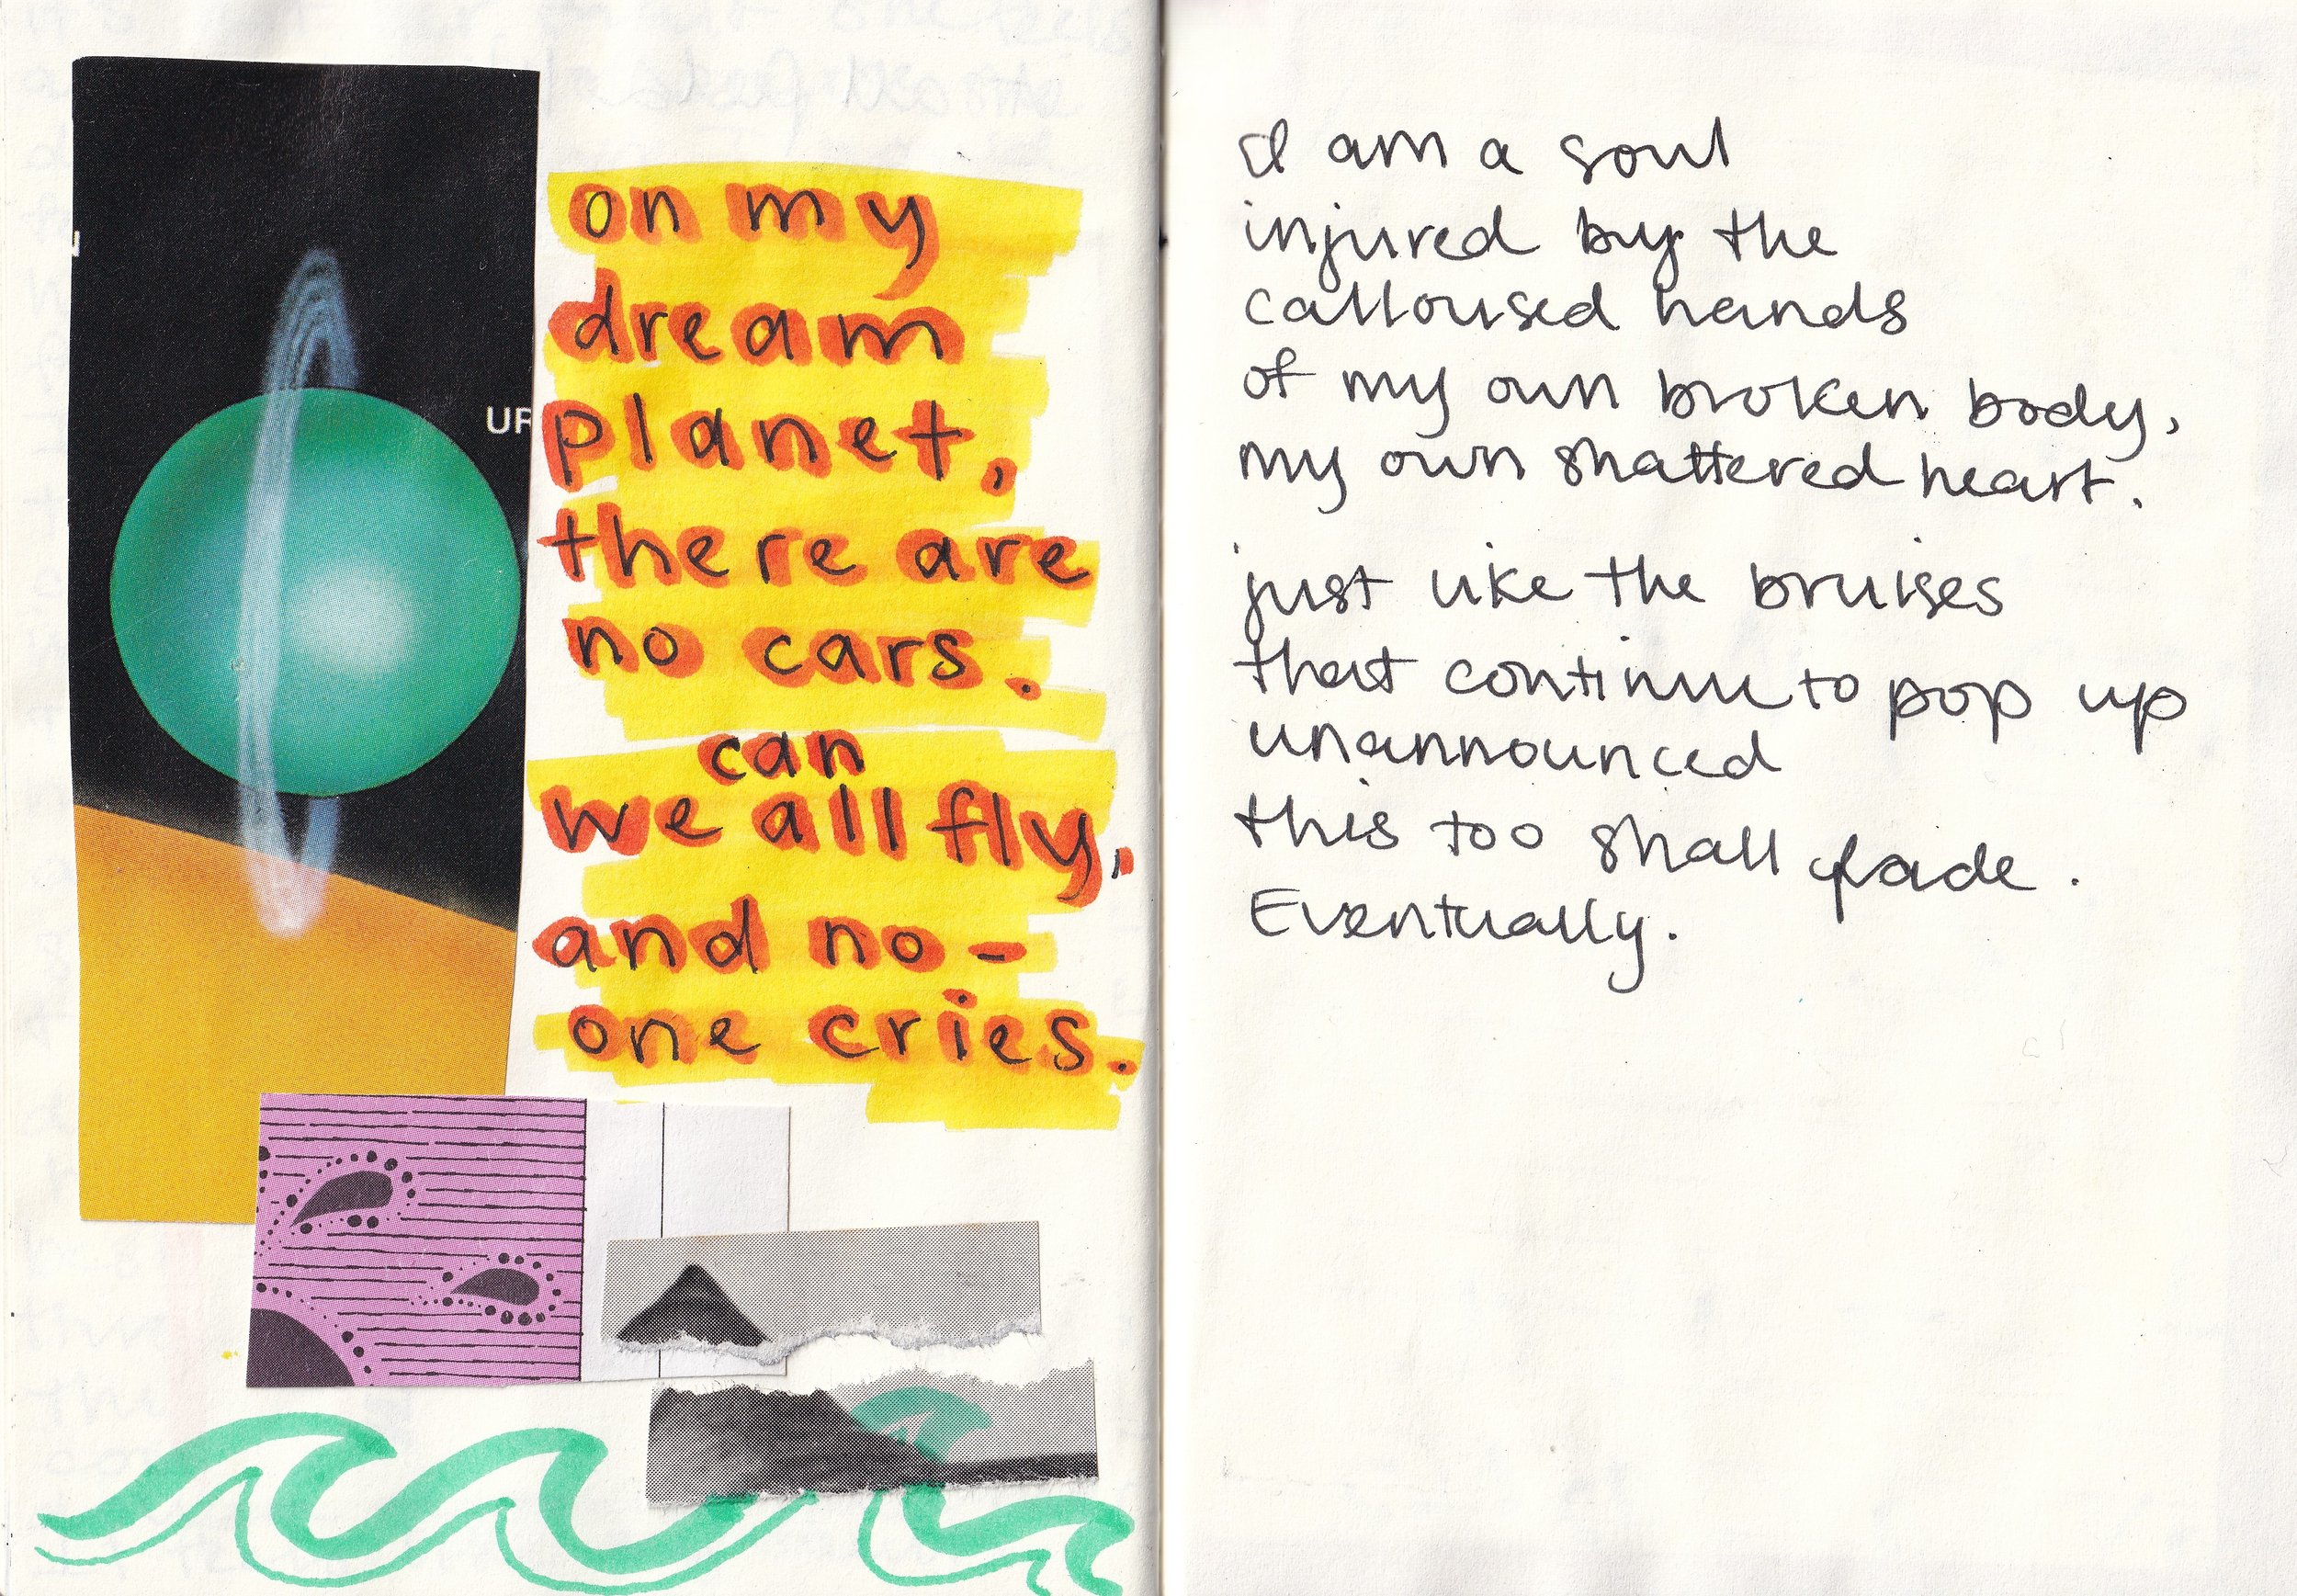 N
UR
on my
dream
planet,
there are
no cars.
can
we all fly,
and no-
one cries.
I am a soul
injured by the
calloused hands
of my own broken body,
my own shattered heart.
just like the bruises
that continue to pop up
unannounced
this too shall fade.
Eventually.